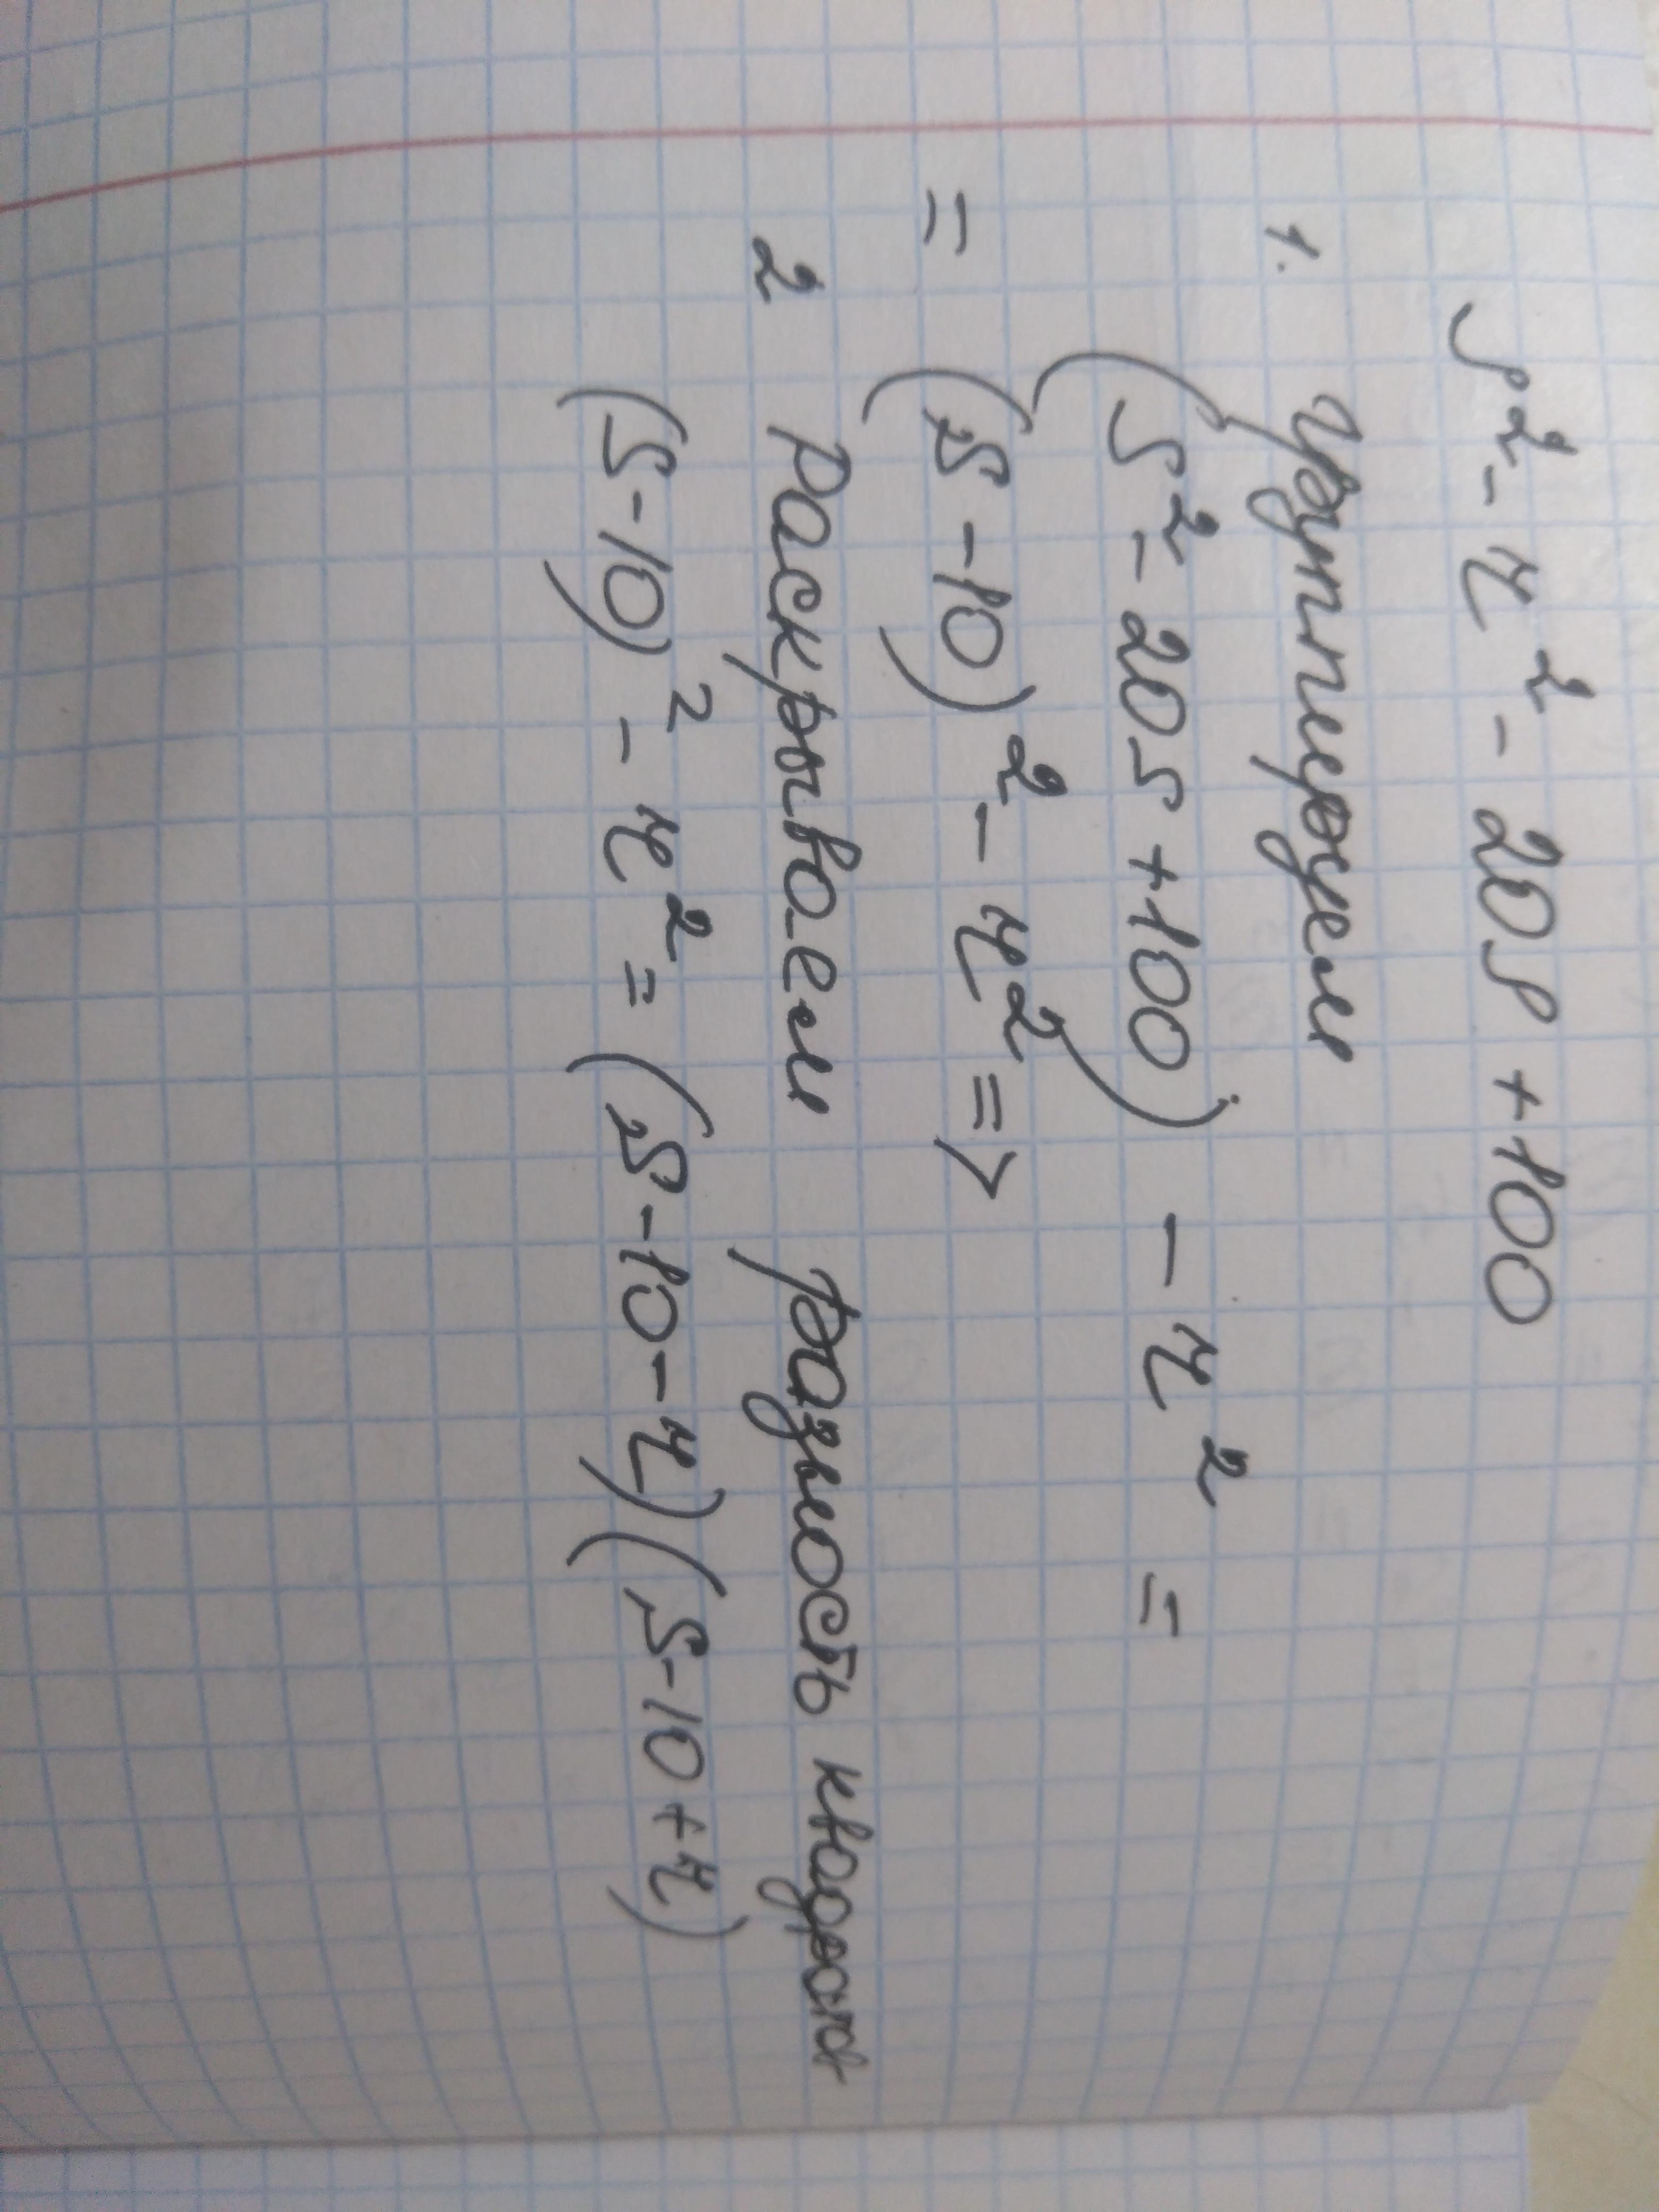 s² - r² - 20s + 100
1. Группируем
(s² - 20s + 100) - r² =
= (s - 10)² - r² =>
2 раскрываем разность квадратов
(s - 10)² - r² = (s - 10 - r)(s - 10 + r)